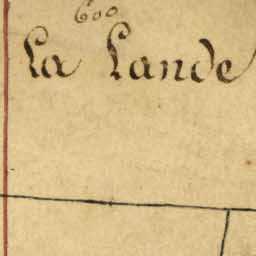 600
La Lande